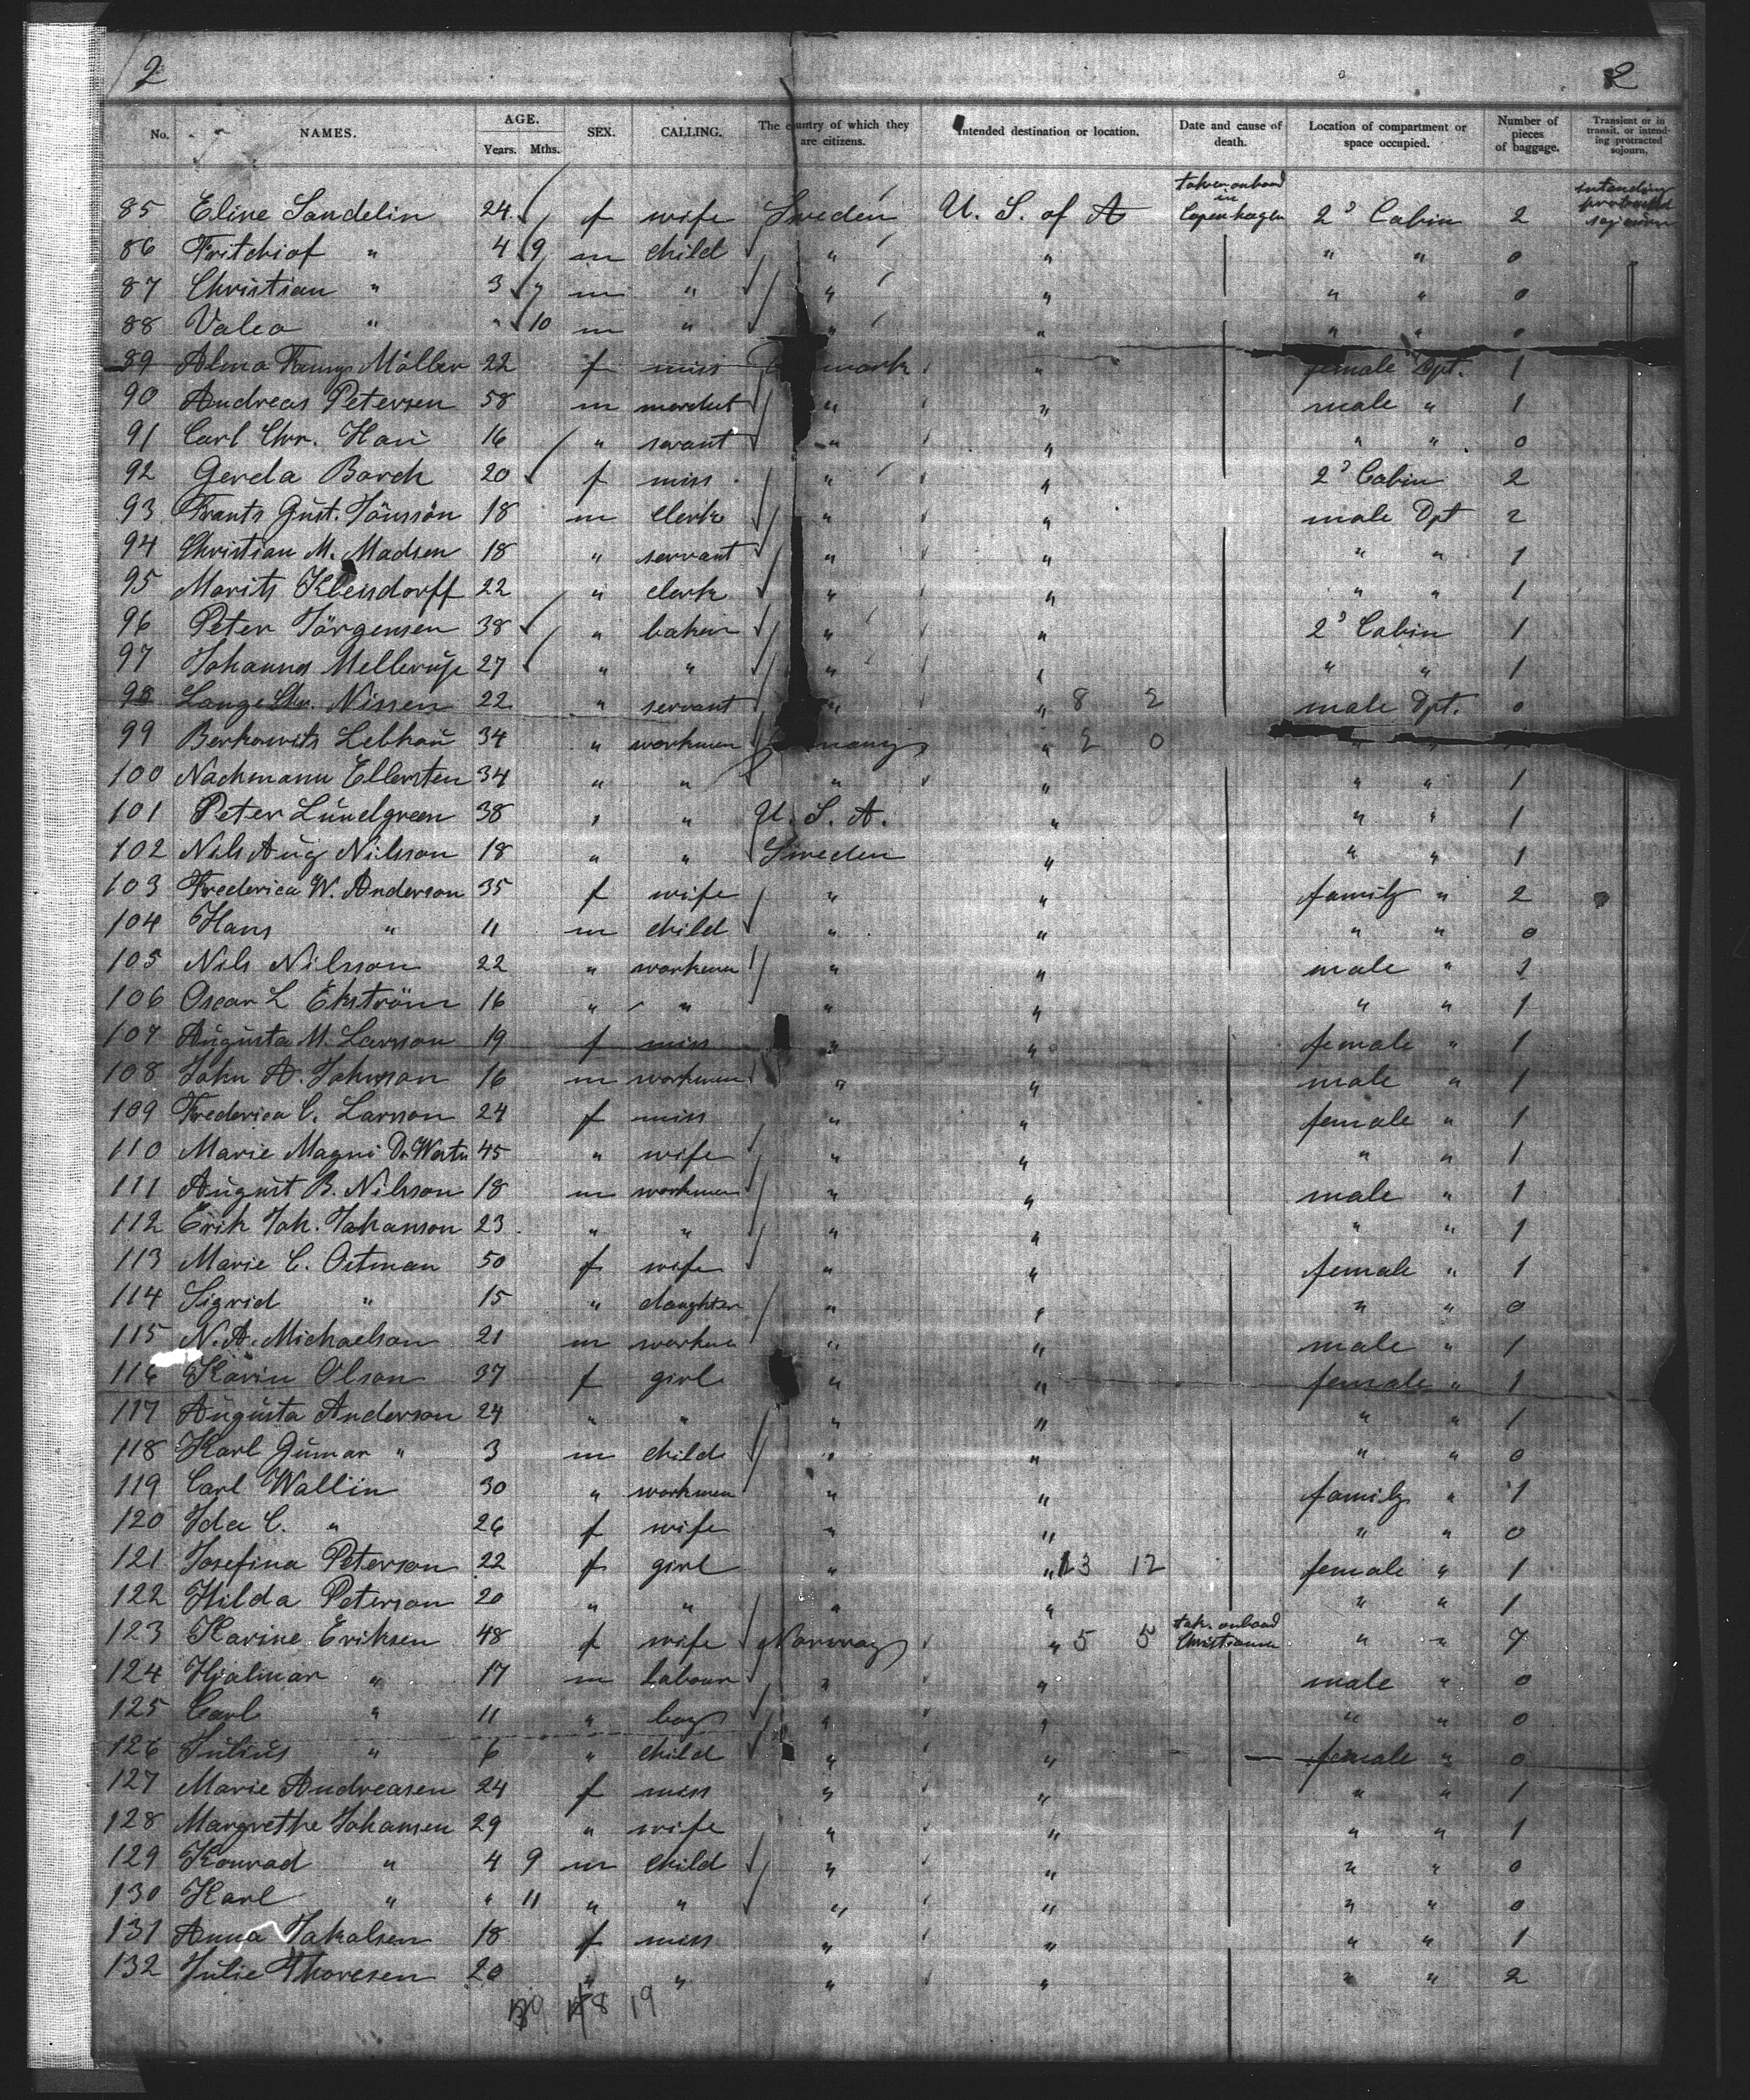 2 2
No. NAMES. AGE. Years. Mths. SEX. CALLING. The country of which they are citizens. Intended destination or location. Date and cause of death. Location of compartment or space occupied. Number of pieces of baggage. Transient or in transit, or intending protracted sojourn.
85 Eline Sandelin 24 f wife Sweden U. S. of A taken onboard in Copenhagen 2d Cabin 2 intending protracted sojourn
86 Fritchiof " 4 9 m child " " " " 0
87 Christian " 3 m " " " " " 0
88 Valeo " " 10 m " " " " " 0
89 Alma Möller 22 f miss mark " female Dpt. 1
90 Andreas Petersen 58 m " " male " 1
91 Carl Chr. Hau 16 " " " " " 0
92 Gerda Borch 20 f miss " " 2d Cabin 2
93 Frants Gust. Jönssön 18 m clerk " " male Dpt 2
94 Christian M. Madsen 18 " servant " " " " 1
95 Morits Kleisdorff 22 " clerk " " " " 1
96 Peter Jörgensen 38 " baker " " 2d Cabin 1
97 Johannes Mellerup 27 " " " " " " 1
98 Lauge Chr. Nissen 22 " servant " " 8 2 male Dpt. 0
99 Berkowits Lebkau 34 " workman many " 2 0 " "
100 Nachmann Ellersten 34 " " " " " " 1
101 Peter Lundgreen 38 " " U. S. A. " " " 1
102 Nils Aug Nilsson 18 " " Sweden " " " 1
103 Frederica W. Anderson 35 f wife " " family " 2
104 Hans " 11 m child " " " " 0
105 Nils Nilsson 22 " workman " " male " 1
106 Oscar L Ekström 16 " " " " " " 1
107 Augusta M. Larsson 19 f miss " " female " 1
108 John A. Johnson 16 m workman " " male " 1
109 Frederica C. Larsson 24 f miss " " female " 1
110 Marie Magni 45 " wife " " " " 1
111 August B. Nilsson 18 m workman " " male " 1
112 Erik Joh. Johanson 23 " " " " " " 1
113 Marie C. Ostman 50 f wife " " female " 1
114 Sigrid " 15 " daughter " " " " 0
115 N. A. Michaelson 21 m workman " " male " 1
116 Karin Olson 37 f girl " " female " 1
117 Augusta Anderson 24 " " " " " " 1
118 Karl Gunnar " 3 m child " " " " 0
119 Carl Wallin 30 " workman " " family " 1
120 Ida C. " 26 f wife " " " " 0
121 Josefina Peterson 22 f girl " " 13 12 female " 1
122 Hilda Peterson 20 " " " " " " 1
123 Karine Eriksen 48 f wife Norway " 5 5 tak. onboard Christiania " " 7
124 Hjalmar " 17 m labour " " male " 0
125 Carl " 11 " boy " " " " 0
126 Julius " 6 " child " " female " 0
127 Marie Andreasen 24 f miss " " " " 1
128 Margrethe Johansen 29 " wife " " " " 1
129 Konrad " 4 9 m child " " " " 0
130 Karl " " 11 " " " " " " 0
131 Anna Jakobsen 18 f miss " " " " 1
132 Julie Thoresen 20 " " " " " " 2
19